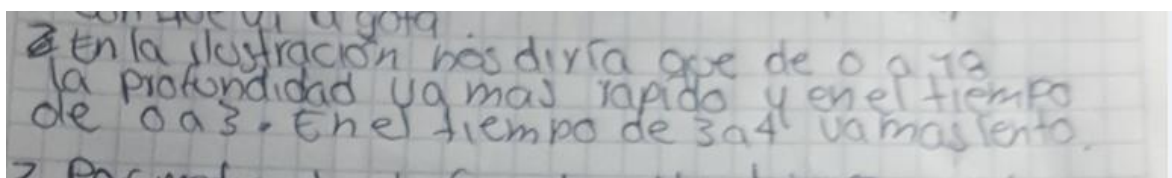 a gota
2 En la ilustración nos diría que de 0 a 18
la profondidad va mas rapido y en el tiempo
de 0 a 3. En el tiempo de 3 a 4 va mas lento.